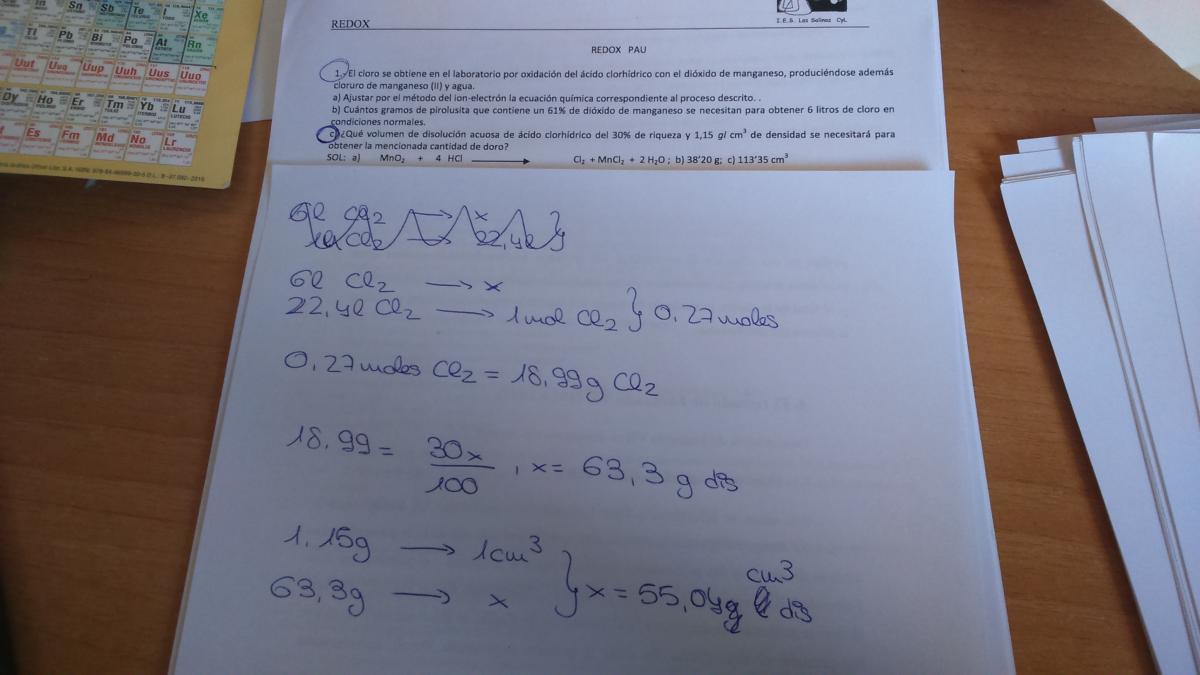 In Sn Sb Te I Xe
Tl Pb Bi Po At Rn
Uut Uuq Uup Uuh Uus Uuo
Dy Ho Er Tm Yb Lu
Es Fm Md No Lr
I.E.S. Las Salinas CyL
REDOX
REDOX PAU
1.- El cloro se obtiene en el laboratorio por oxidación del ácido clorhídrico con el dióxido de manganeso, produciéndose además
cloruro de manganeso (II) y agua.
a) Ajustar por el método del ion-electrón la ecuación química correspondiente al proceso descrito. .
b) Cuántos gramos de pirolusita que contiene un 61% de dióxido de manganeso se necesitan para obtener 6 litros de cloro en
condiciones normales.
c) ¿Qué volumen de disolución acuosa de ácido clorhídrico del 30% de riqueza y 1,15 g/ cm³ de densidad se necesitará para
obtener la mencionada cantidad de doro?
SOL: a) MnO₂ + 4 HCl → Cl₂ + MnCl₂ + 2 H₂O ; b) 38'20 g; c) 113'35 cm³
6l Cl₂ → x
22,4l
6l Cl₂ → x
22,4l Cl₂ → 1 mol Cl₂ } 0,27 moles
0,27 moles Cl₂ = 18,99g Cl₂
18,99 = 30x/100 , x = 63,3 g dis
1,15g → 1cm³
63,3g → x } x = 55,04 cm³ dis